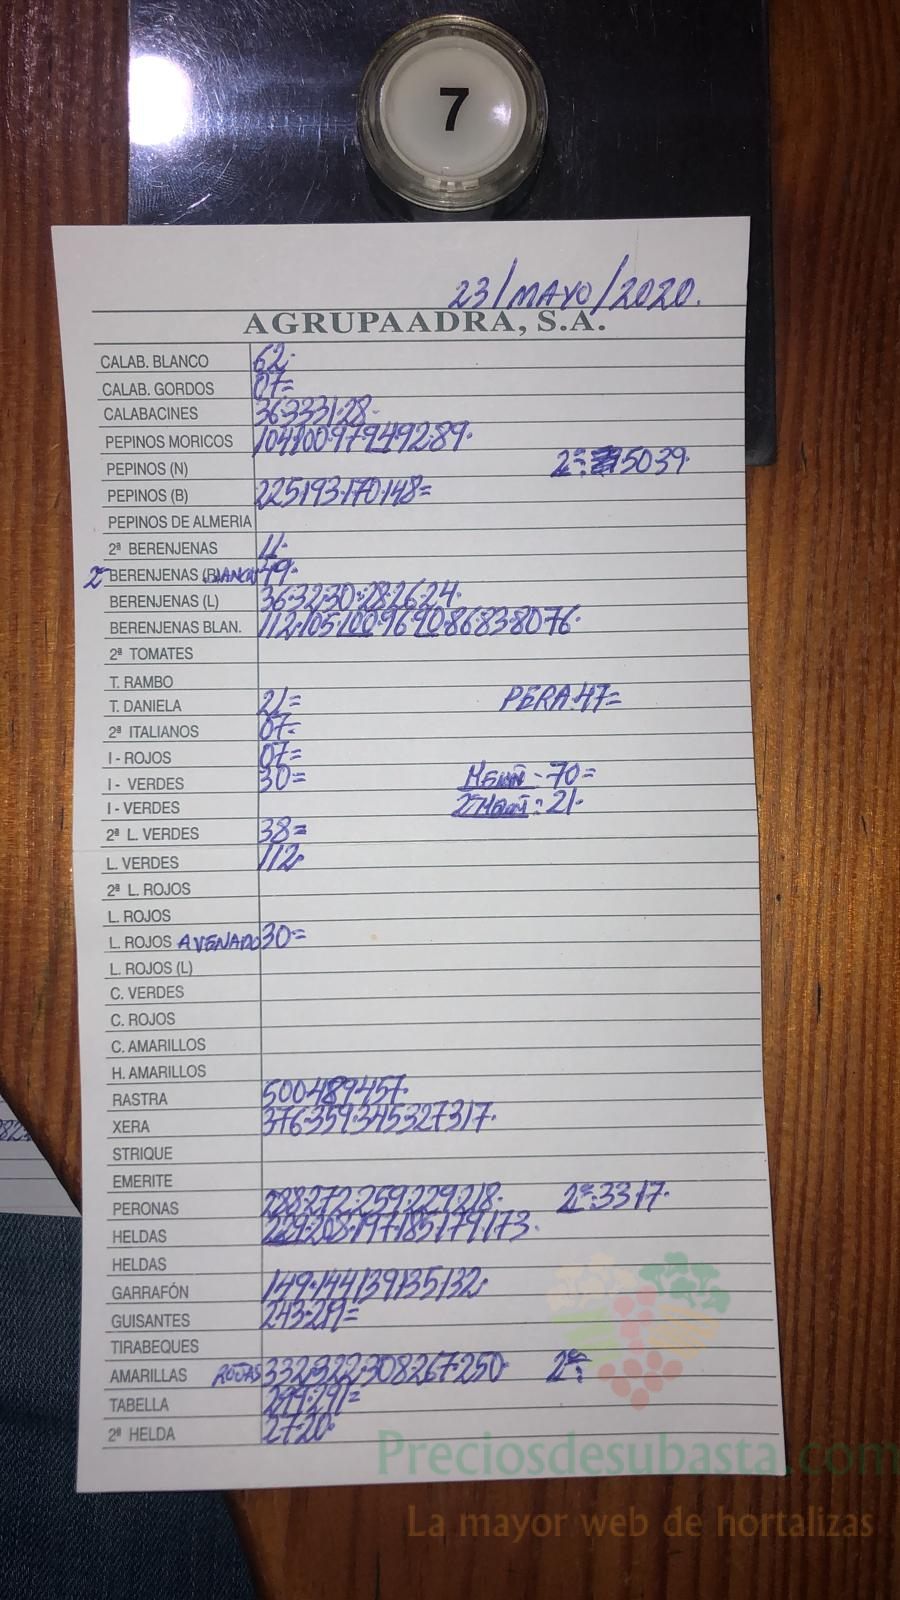 7
23/MAYO/2020.
AGRUPAADRA, S.A.
CALAB. BLANCO 62.
CALAB. GORDOS 07=
CALABACINES 36.33.31.28.
PEPINOS MORICOS 104.100.97.94.92.89.
PEPINOS (N) 2ª: 5039.
PEPINOS (B) 225.193.170.148=
PEPINOS DE ALMERIA
2ª BERENJENAS 11.
2ª BERENJENAS (BLANCA 49.
BERENJENAS (L) 36.32.30.28.26.24.
BERENJENAS BLAN. 112.105.100.96.90.86.83.80.76.
2ª TOMATES
T. RAMBO
T. DANIELA 21= PERA.47=
2ª ITALIANOS 07=
I - ROJOS 07=
I - VERDES 30= 70=
I - VERDES 21.
2ª L. VERDES 38=
L. VERDES 112.
2ª L. ROJOS
L. ROJOS
L. ROJOS AVENADO 30=
L. ROJOS (L)
C. VERDES
C. ROJOS
C. AMARILLOS
H. AMARILLOS
RASTRA 500.489.457.
XERA 376.359.345.327.317.
STRIQUE
EMERITE
PERONAS 288.272.259.229.218. 2ª:33.17.
HELDAS 229.208.197.185.179.173.
HELDAS
GARRAFÓN 149.144.139.135.132.
GUISANTES 243.219=
TIRABEQUES
AMARILLAS ROJAS 332.322.308.267.250. 2ª:
TABELLA 299.291=
2ª HELDA 27.20.
Preciosdesubasta.com
La mayor web de hortalizas